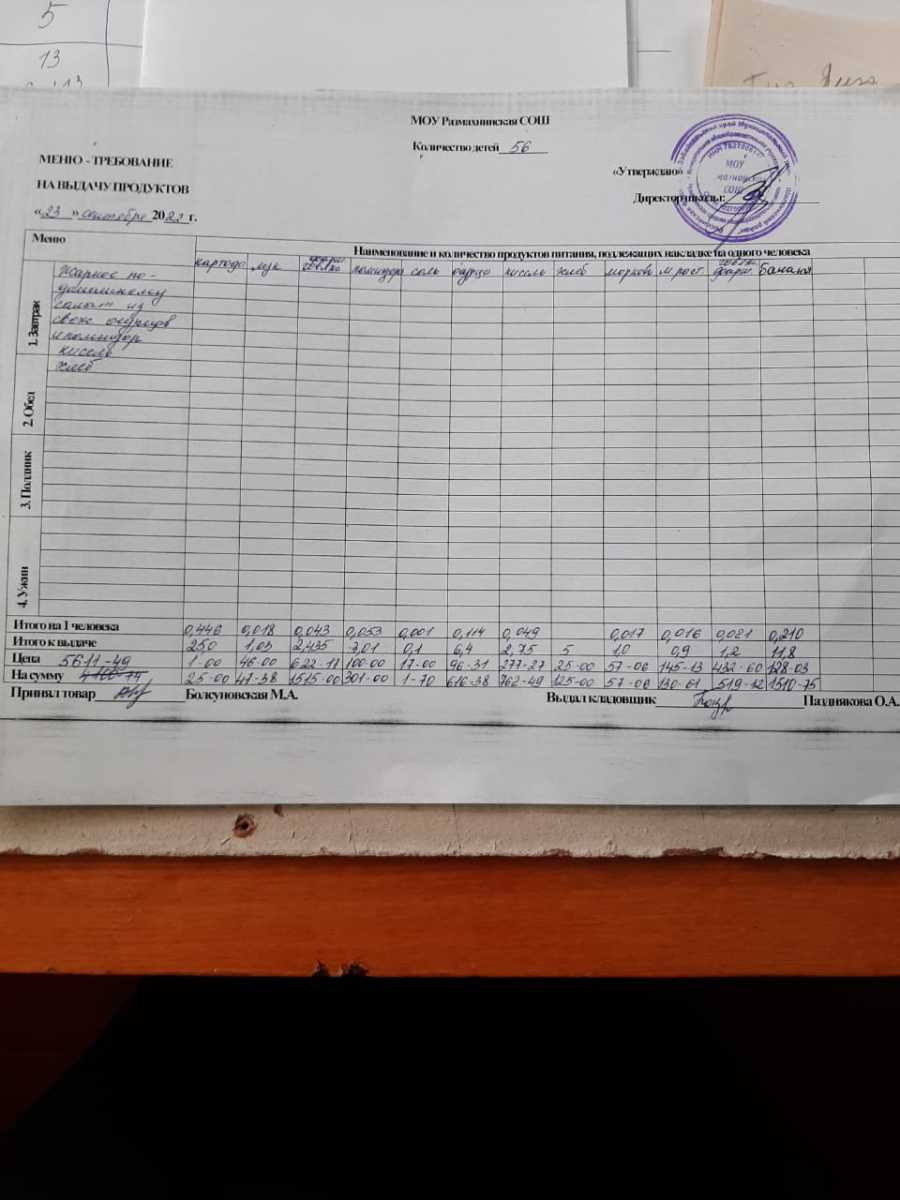 5
13
МОУ Размахнинская СОШ
Количество детей 56
МЕНЮ - ТРЕБОВАНИЕ
НА ВЫДАЧУ ПРОДУКТОВ
«Утверждаю»
Директор школы:
МОУ
СОШ
«23 » сентября 2022 г.
Меню
Наименование и количество продуктов питания, подлежащих накладке на одного человека
картофо лук фарш помидора соль огурцо кисель хлеб морковь м.раст. фарш. бананы
1. Завтрак
жаркое по-
домашнему
салат из
свеж огурцов
и помидор
кисель
хлеб
2. Обед
3. Полдник
4. Ужин
Итого на 1 человека 0,446 0,018 0,043 0,053 0,001 0,114 0,049 0,017 0,016 0,021 0,210
Итого к выдаче 25,0 1,03 2,435 3,01 0,1 6,4 2,75 5 1,0 0,9 1,2 11,8
Цена 5611-49 1-00 46-00 622-11 100-00 17-00 96-31 277-27 25-00 57-00 145-13 432-60 128-03
На сумму 25-00 47-38 1515-00 301-00 1-70 616-38 762-49 125-00 57-00 130-61 519-12 1510-75
Принял товар Болсуновская М.А. Выдал кладовщик Позднякова О.А.